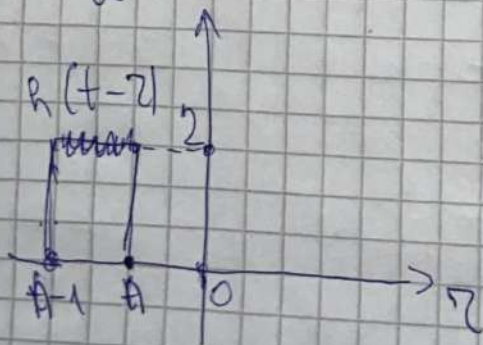 h(t-τ)
2
t-1 t 0 τ